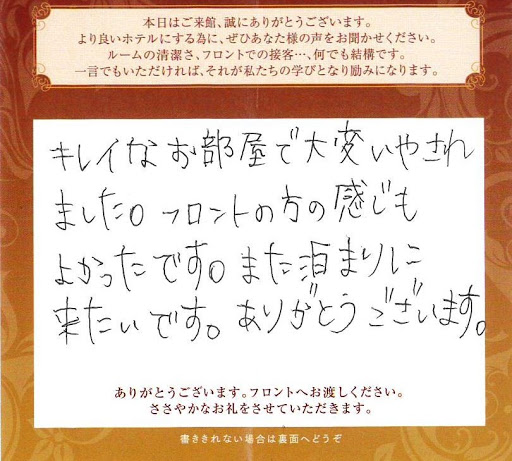 本日はご来館、誠にありがとうございます。
より良いホテルにする為に、ぜひあなた様の声をお聞かせください。
ルームの清潔さ、フロントでの接客…、何でも結構です。
一言でもいただければ、それが私たちの学びとなり励みになります。
キレイなお部屋で大変いやされ
ました。フロントの方の感じも
よかったです。また泊まりに
来たいです。ありがとうございます。
ありがとうございます。フロントへお渡しください。
ささやかなお礼をさせていただきます。
書ききれない場合は裏面へどうぞ